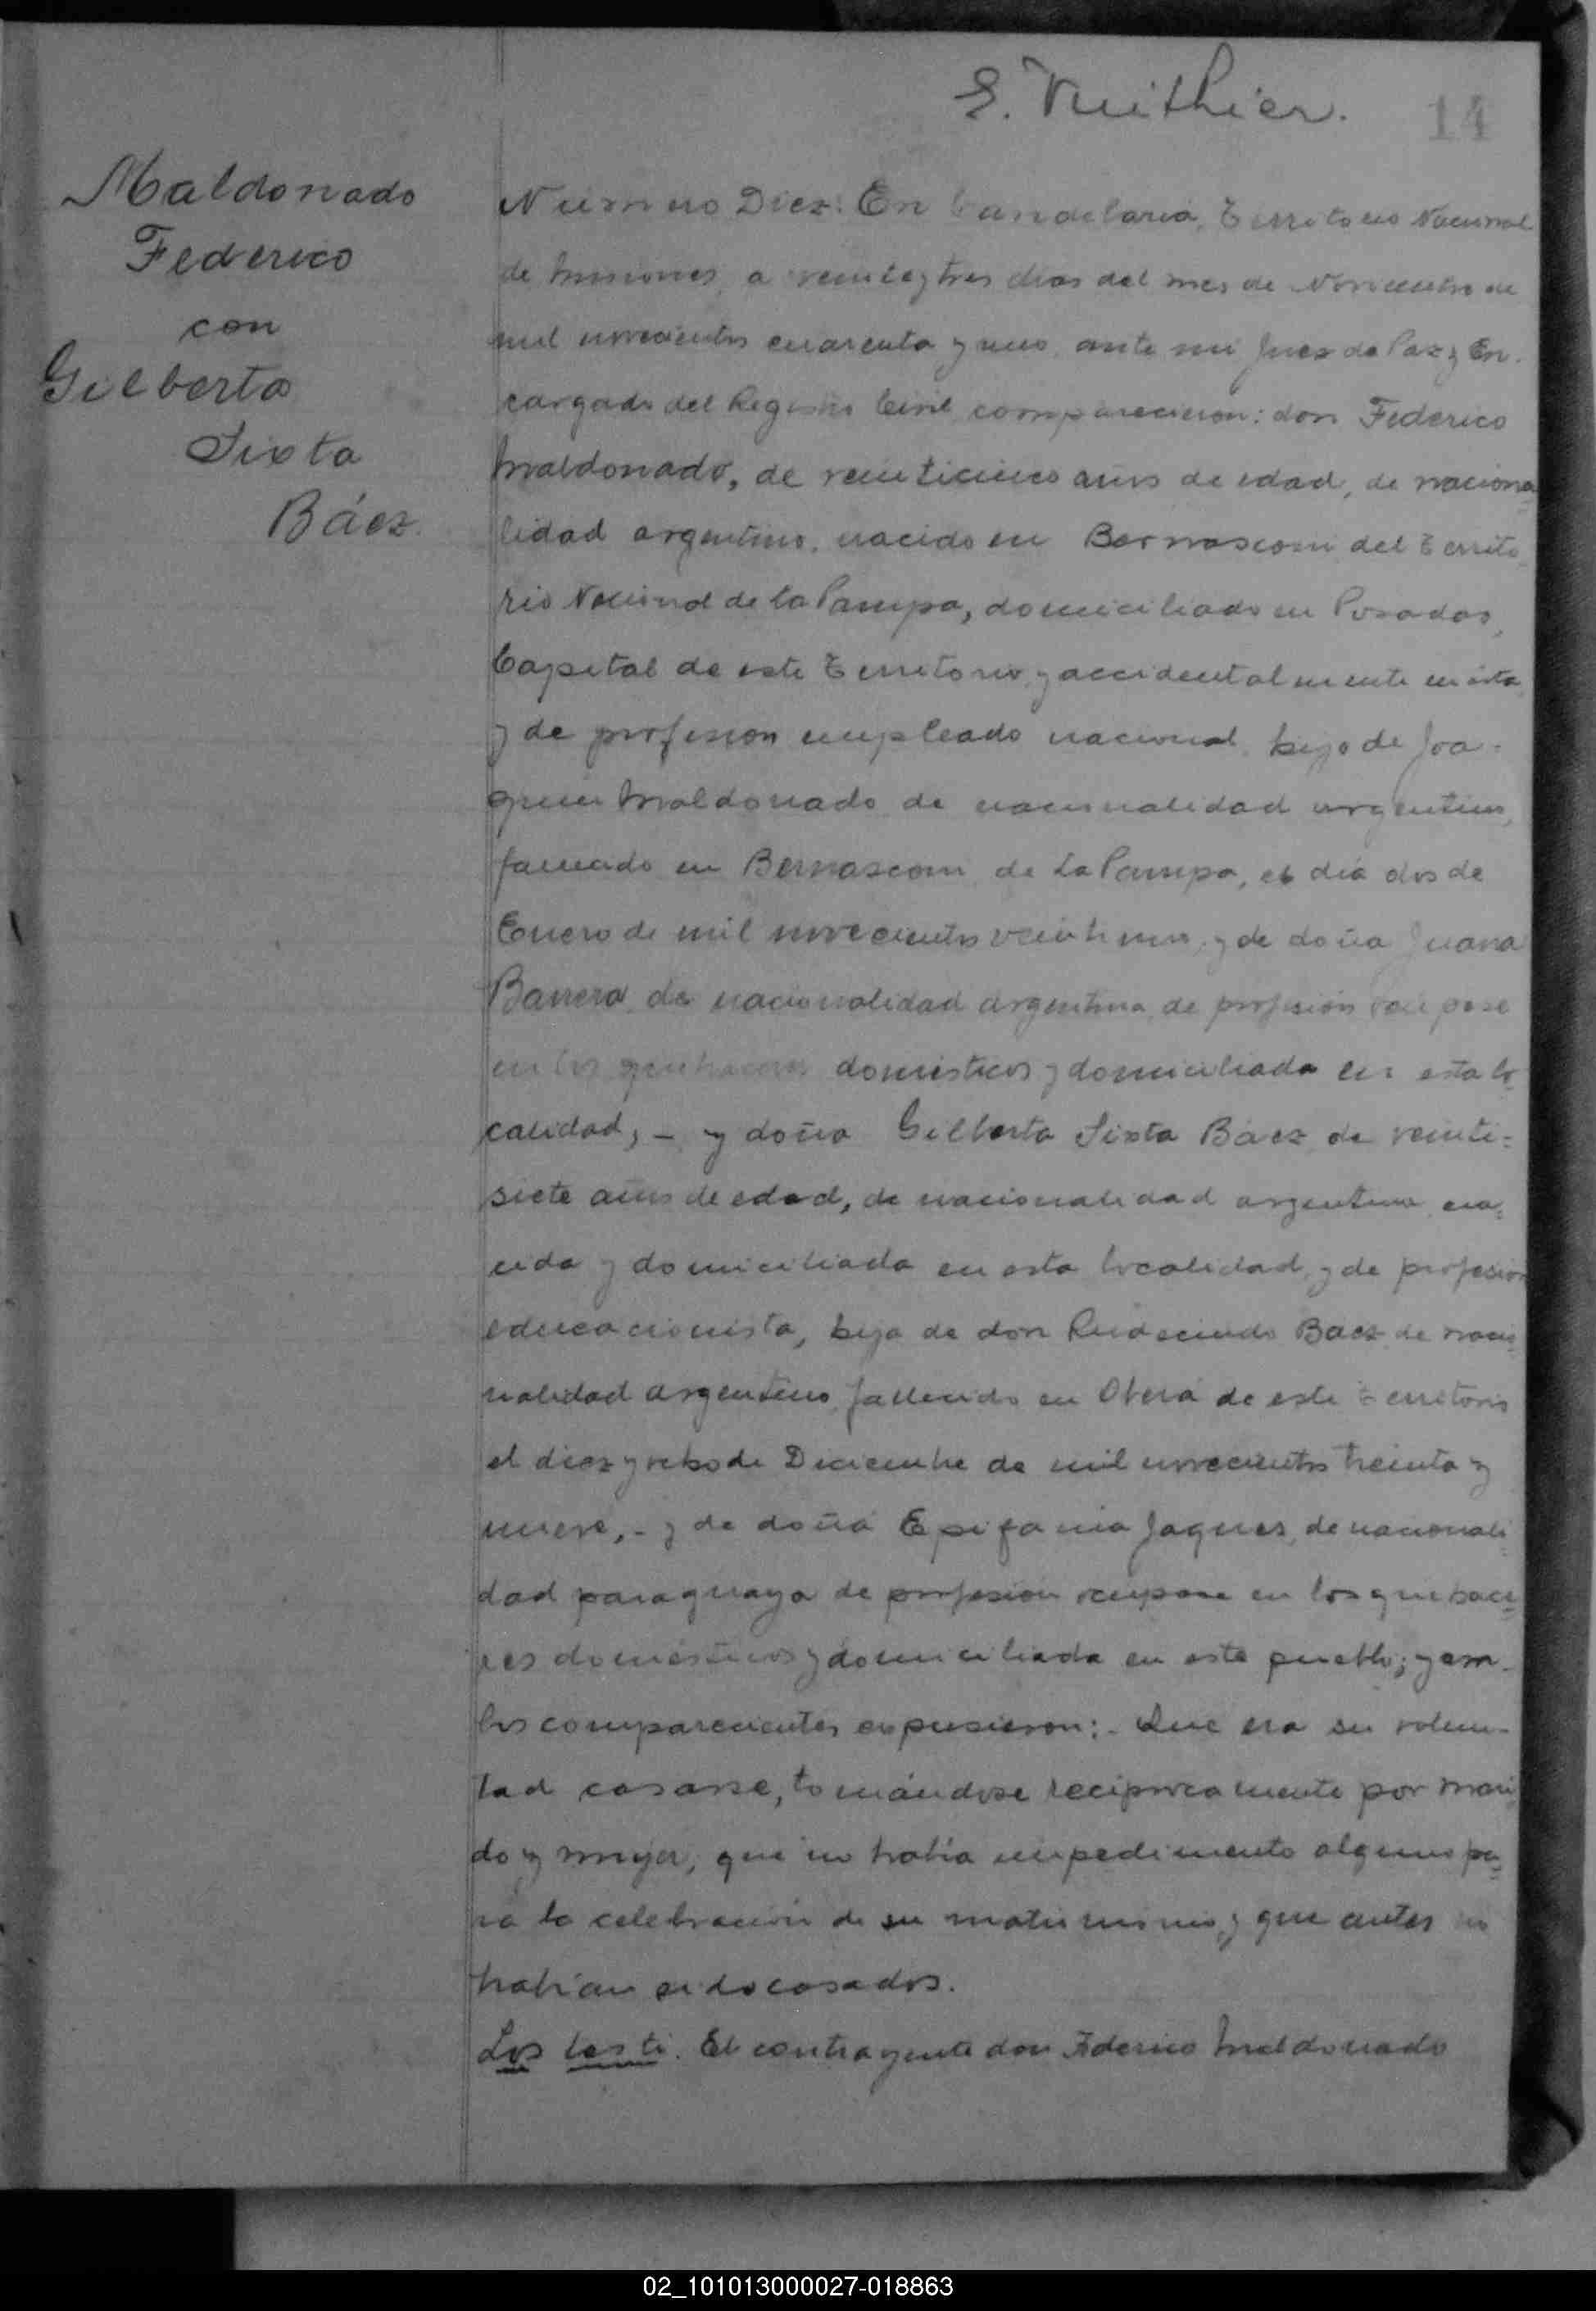 E. Vuithier.
14
Maldonado
Federico
con
Gilberta
Sixta
Báez.
Número Diez: En Candelaria, Territorio Nacional
de Misiones, a veinte y tres dias del mes de Noviembre de
mil novecientos cuarenta y uno, ante mi Juez de Paz y En-
cargado del Registro Civil, comparecieron: don Federico
Maldonado, de veinticinco años de edad, de naciona-
lidad argentino, nacido en Bernasconi del Territo-
rio Nacional de la Pampa, domiciliado en Posadas,
Capital de este Territorio, y accidentalmente en ésta,
y de profesion empleado nacional, hijo de Joa-
quin Maldonado de nacionalidad argentino,
fallecido en Bernasconi de La Pampa, el día dos de
Enero de mil novecientos veintiuno, y de doña Juana
Barrera de nacionalidad argentina, de profesión ocúpase
en los quehaceres domésticos y domiciliada en esta lo-
calidad, - y doña Gilberta Sixta Báez de veinti-
siete años de edad, de nacionalidad argentina, na-
cida y domiciliada en esta localidad, y de profesión
educacionista, hija de don Rudecindo Baez de nacio-
nalidad argentino, fallecido en Oberá de este Territorio
el diez y ocho de Diciembre de mil novecientos treinta y
nueve, - y de doña Epifania Jaques, de nacionali-
dad paraguaya de profesión ocúpase en los quehace-
res domésticos y domiciliada en este pueblo; y am-
bos comparecientes expusieron: - Que era su volun-
tad casarse, tomándose recíprocamente por mari-
do y mujer, que no había impedimento alguno pa-
ra la celebración de su matrimonio, y que antes no
habían sido casados.
Los testi. El contrayente don Federico Maldonado
02_101013000027-018863